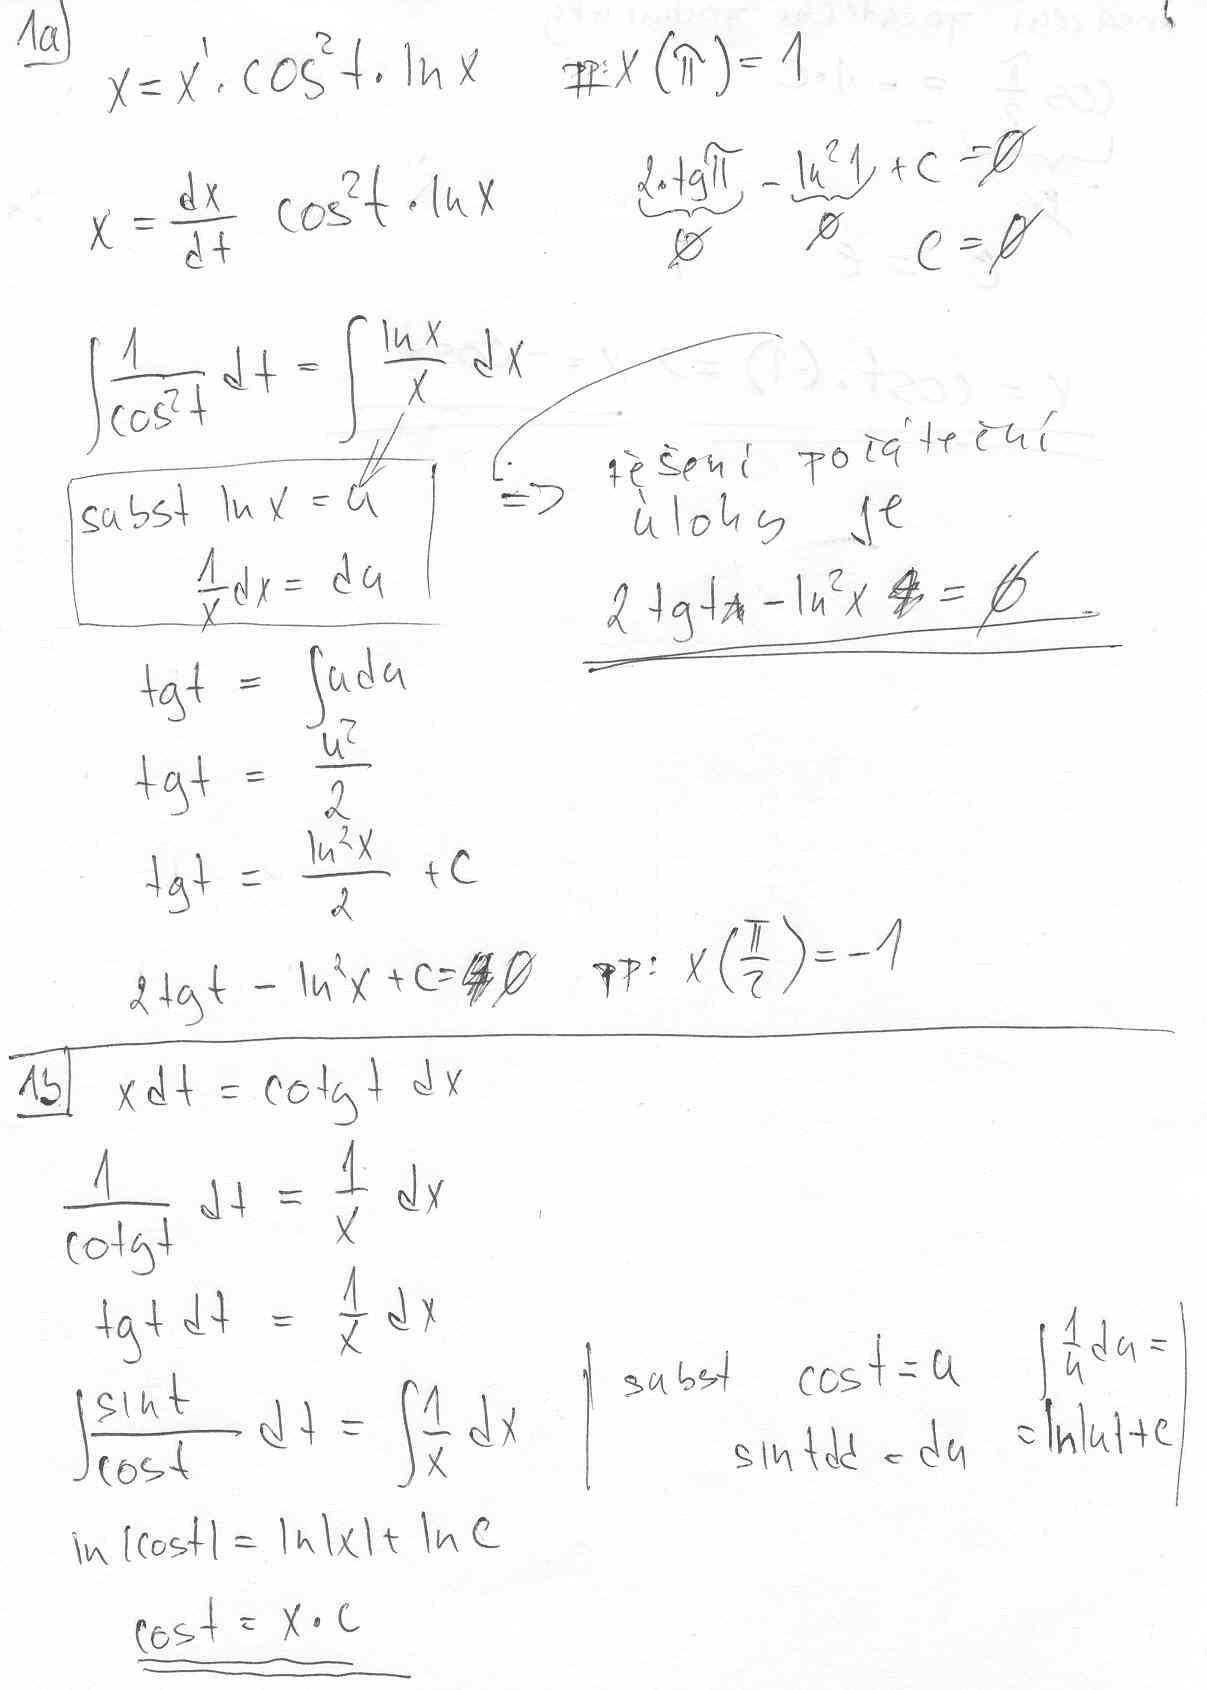 1a)
x = x' · cos²t · ln x   pp: x(π) = 1
x = dx/dt cos²t · ln x
2·tgπ - ln²1 + c = 0
0   0   c = 0
∫ 1/cos²t dt = ∫ ln x/x dx
subst ln x = u
1/x dx = du
=> řešení počáteční
úlohy je
2 tgt - ln²x = 0
tgt = ∫u du
tgt = u²/2
tgt = ln²x/2 + c
2tgt - ln²x + c = 0   pp: x(π/2) = -1
1b) x dt = cotgt dx
1/cotgt dt = 1/x dx
tgt dt = 1/x dx
∫ sint/cost dt = ∫ 1/x dx
subst cost = u   ∫ 1/u du =
sint dt = du   = ln|u| + c
ln|cost| = ln|x| + ln c
cost = x · c